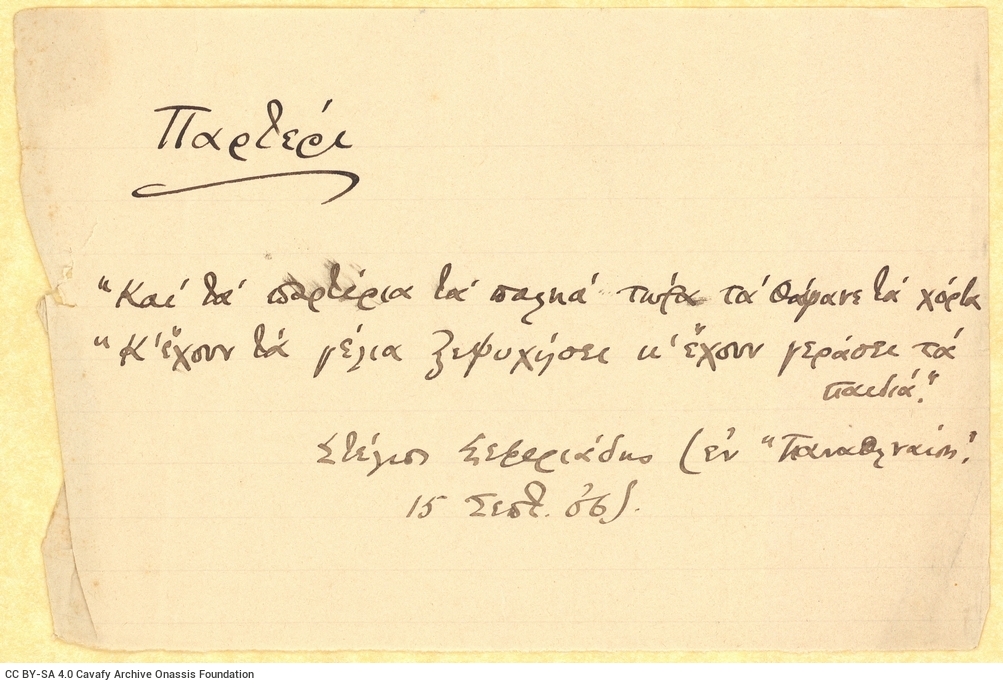 Παρτέρι
"Καί τά παρτέρια τά παληά τώρα τά θάψανε τά χόρτα
"Κ' έχουν τά γέλια ξεψυχήσει κ' έχουν γεράσει τά
παιδιά."
Στέλιος Σεφεριάδης (εν "Παναθηναίοις".
15 Σεπτ. 06).
CC BY-SA 4.0 Cavafy Archive Onassis Foundation